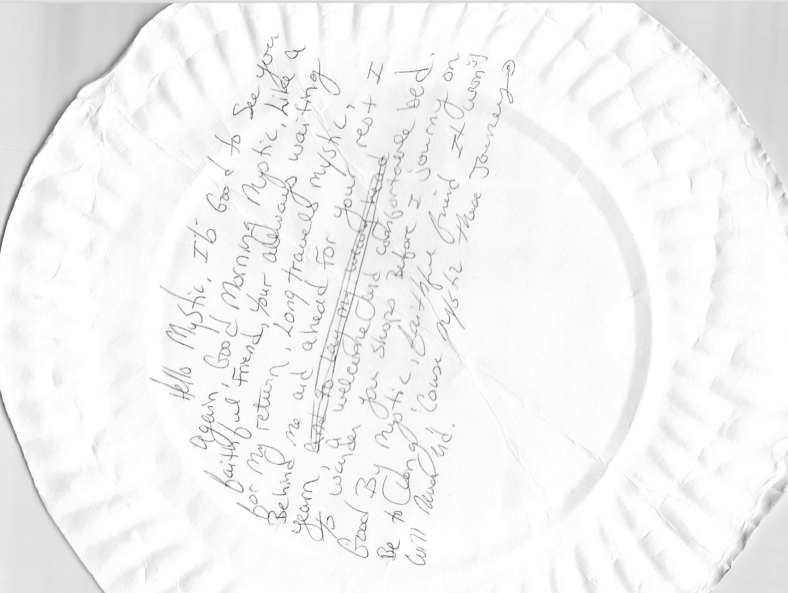 Hello Mystic, It's Good to See you
Again, Good Morning Mystic, Like a
faithful Friend, your allways waiting
for My return, Long travels
Behind me and ahead For mystic,
yearn and to lay my weary head your rest I
to wander, a welcome and comfortable bed.
Good By Mystic, your shops Before I journey on
Be to long, faithful friend It wont
Will and 'Cause mystic these Journey